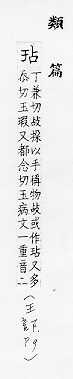 類篇
玷
丁兼切敁掇以手稱物敁或作玷又多
忝切玉瑕又都念切玉病文一重音二
(王 P9)